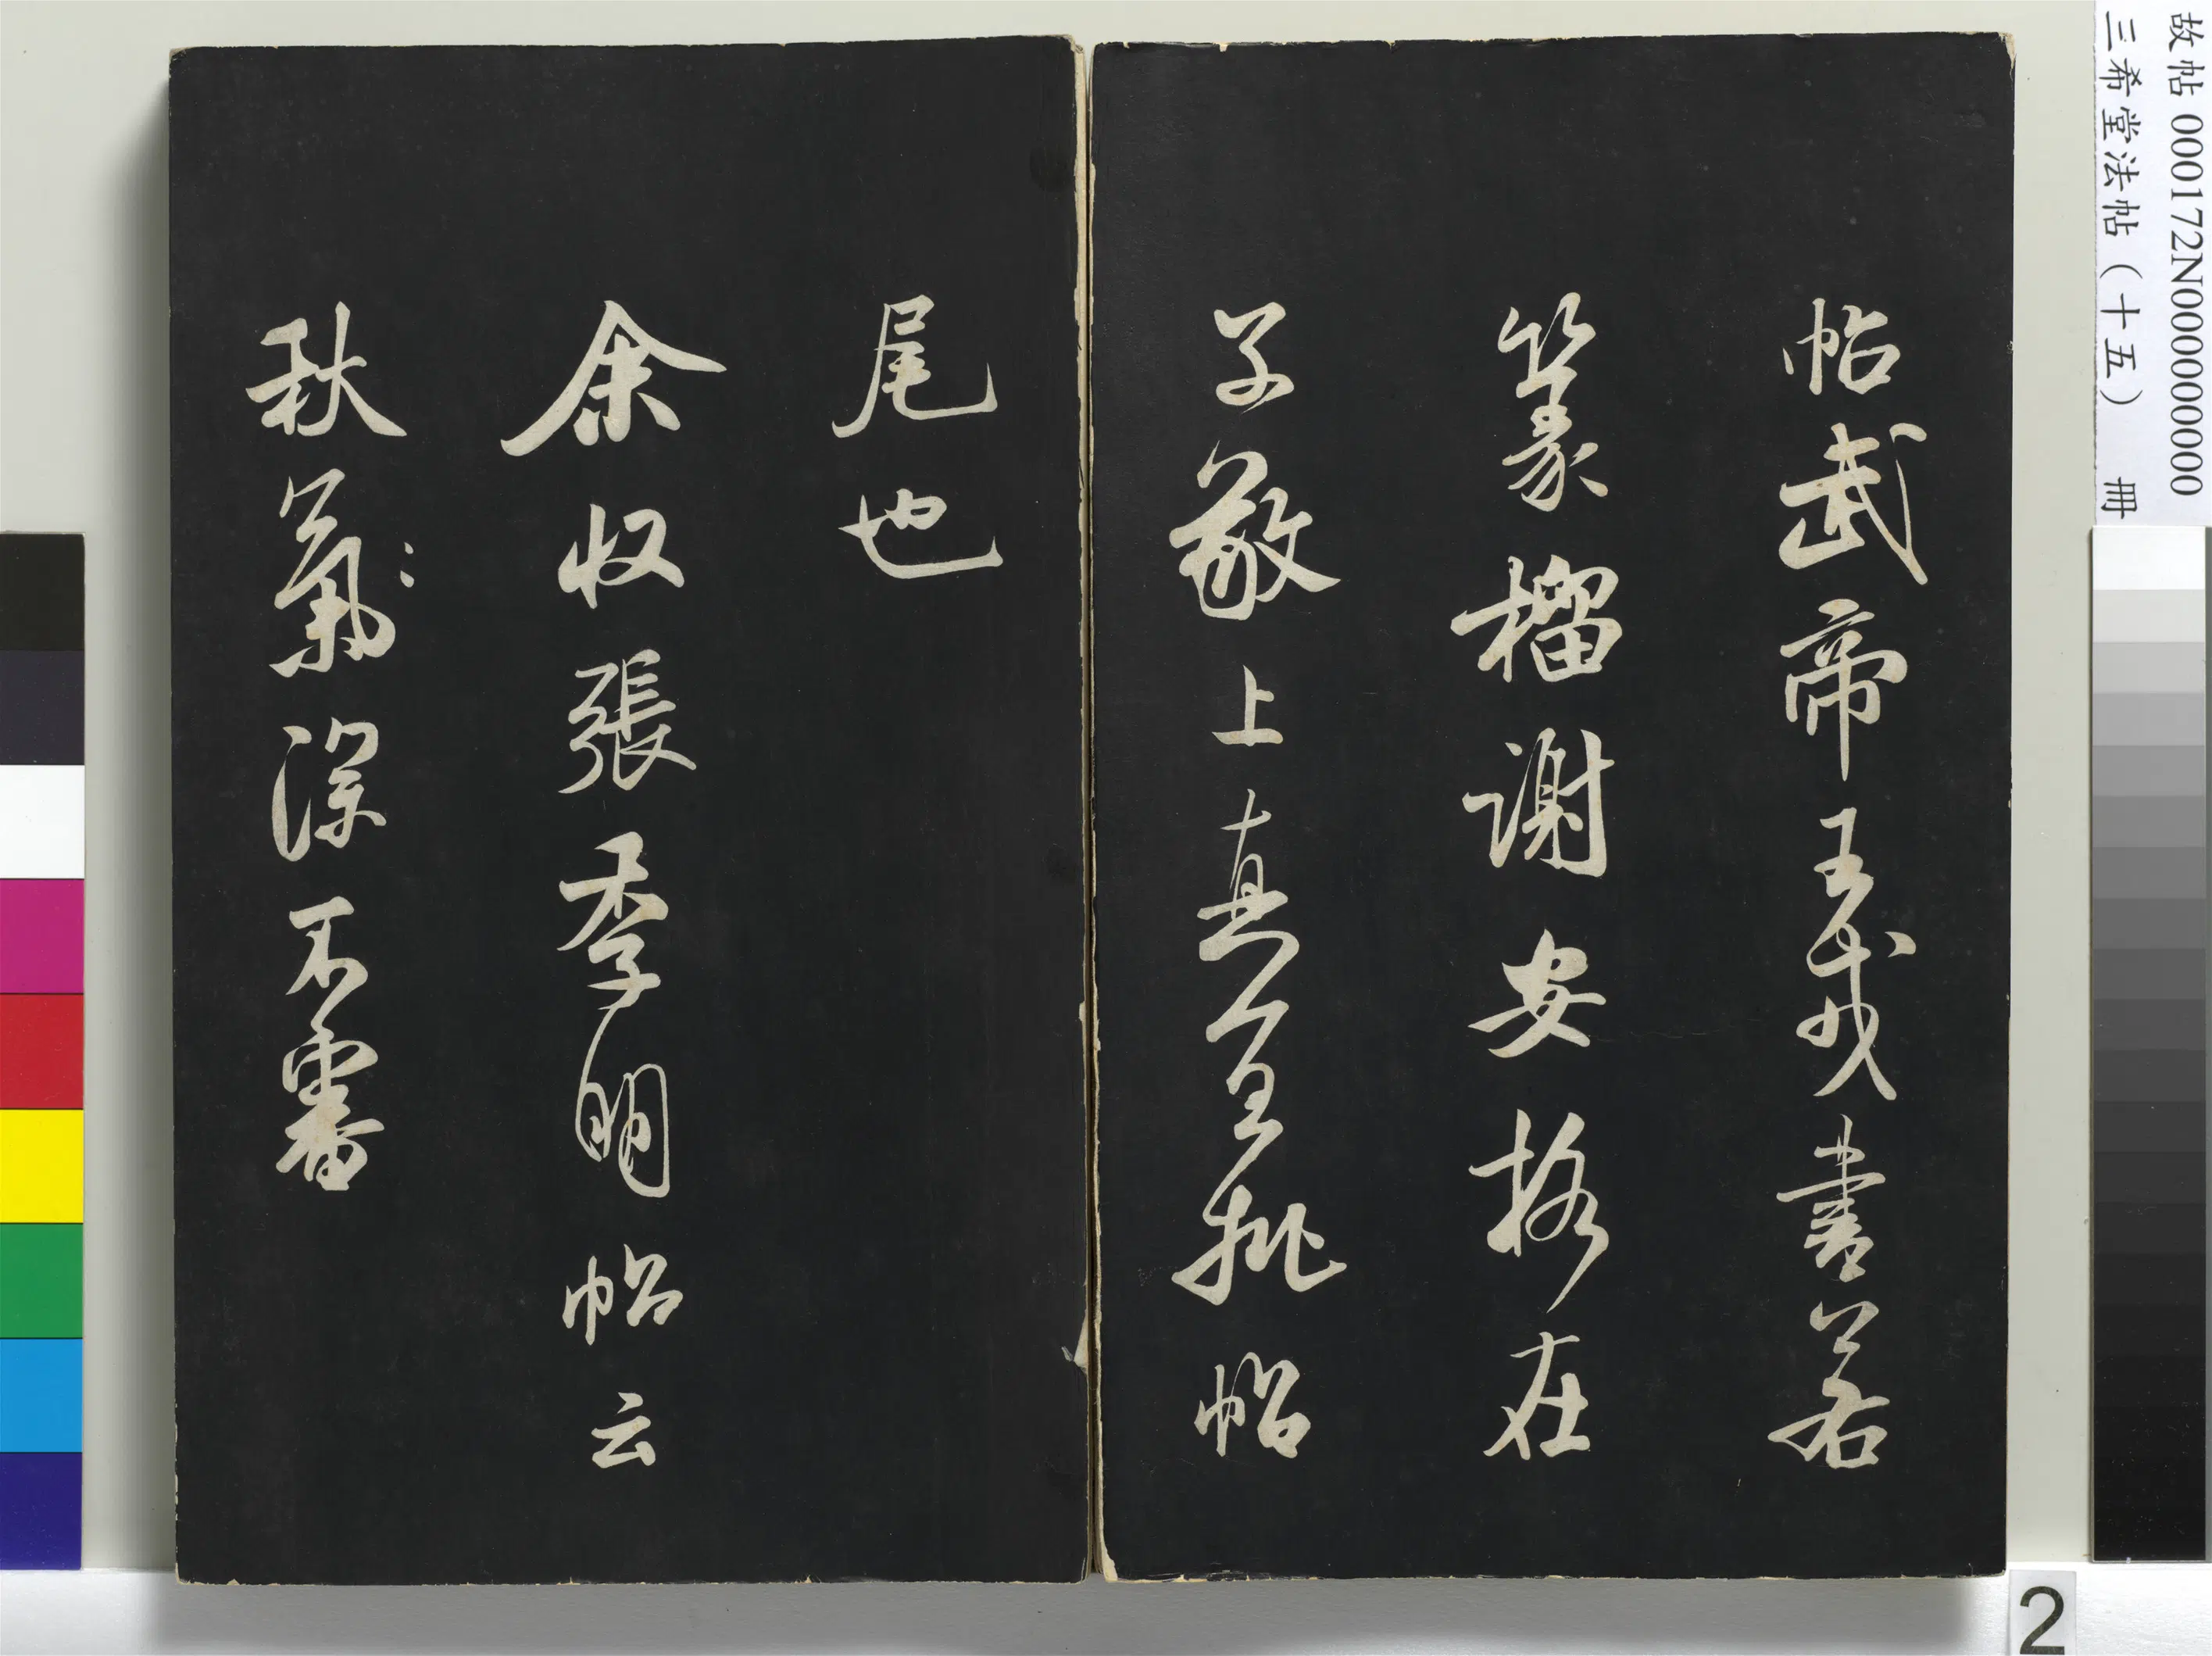 故帖 000172N000000000
三希堂法帖（十五） 冊
帖武帝王戎書若
篆榴謝安格在
子敬上真宜批帖
尾也
余收張季明帖云
秋氣深不審
2